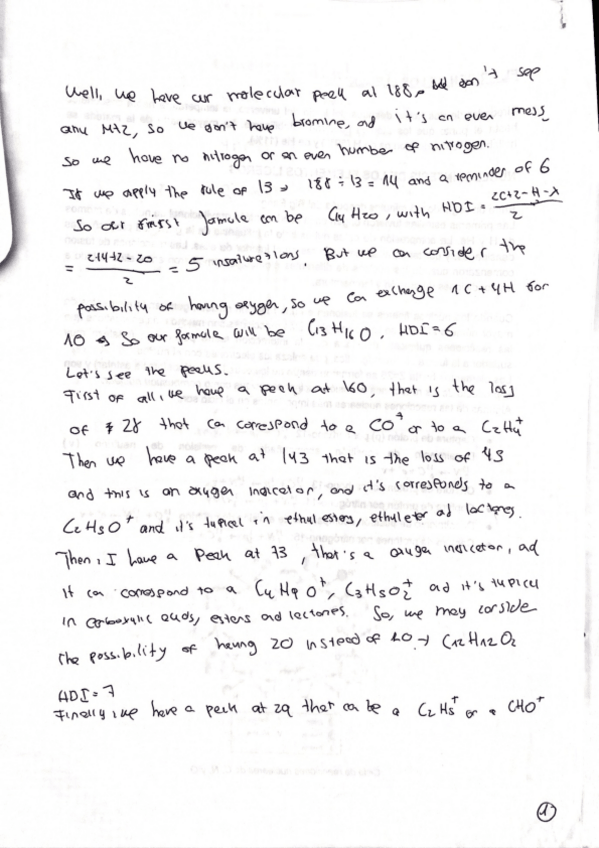 Well, we have our molecular peak at 188, don't see
any M+2, so we don't have bromine, ad it's an even mess
so we have no nitrogen or an even number of nitrogen.
If we apply the rule of 13 → 188 ÷ 13 = 14 and a reminder of 6
So our first formule can be C14 H20, with HDI = (2C+2-H-X)/2
= (2·14+2-20)/2 = 5 insaturations. But we can consider the
possibility of having oxygen, so we can exchange 1C+4H for
1O → So our formula will be C13 H16 O. HDI=6
Let's see the peaks.
First of all, we have a peak at 160, that is the loss
of 28 that can correspond to a CO+ or to a C2H4+
Then we have a peak at 143 that is the loss of 45
and this is an oxygen indicator, and it's corresponds to a
C2H5O+ and it's typical in ethyl esters, ethyl eter ad lactones.
Then, I have a peak at 73, that's a oxygen indicator, ad
It can correspond to a C4H9O+, C3H5O2+ ad it's typical
in carboxylic acids, esters and lactones. So, we may conside
the possibility of having 2O instead of 1O → C12H12O2
HDI=7
Finally, we have a peak at 29 that can be a C2H5+ or a CHO+
1